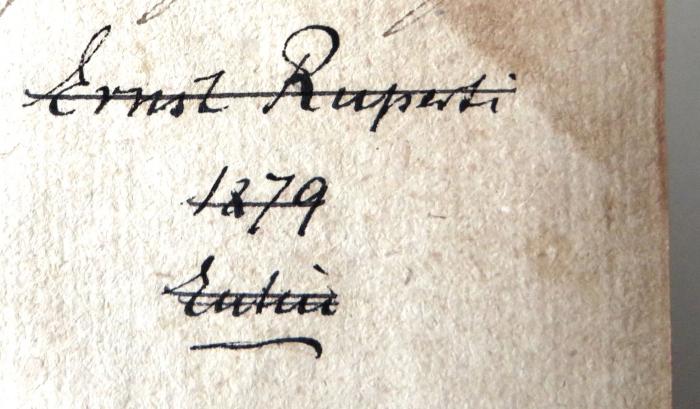 Ernst Ruperti
1879
Eutin